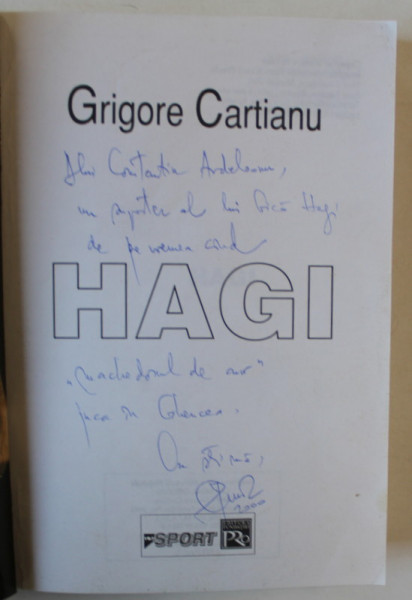 Grigore Cartianu
Dlui Constantin Ardeleanu,
un suporter al lui Gică Hagi
de pe vremea când
HAGI
„machedonul de aur”
juca în Ghencea.
Cu stimă,
2000
SPORT PRO